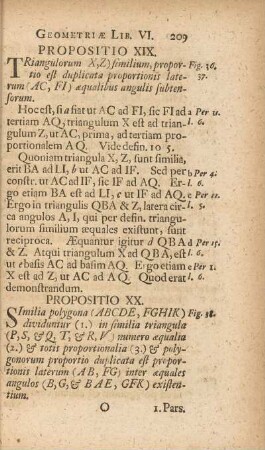 GEOMETRIÆ LIB. VI. 209
PROPOSITIO XIX.
TRiangulorum X, Z) similium, propor- Fig. 36.
tio est duplicata proportionis late- 37.
rum (AC, FI) æqualibus angulis subten-
sorum.
Hoc est, si a fiat ut AC ad FI, sic FI ad a Per 11.
tertiam AQ, triangulum X est ad trian- l. 6.
gulum Z, ut AC, prima, ad tertiam pro-
portionalem AQ. Vide defin. 10 5.
Quoniam triangula X, Z, sunt similia,
erit BA ad LI, b ut AC ad IF. Sed per b Per 4.
constr. ut AC ad IF, sic IF ad AQ. Er- l. 6.
go etiam BA est ad LI, c ut IF ad AQ. c Per 11.
Ergo in triangulis QBA & Z, latera cir- l. 5.
ca angulos A, I, qui per defin. triangu-
lorum similium æquales existunt, sunt
reciproca. Æquantur igitur d QBA d Per 15.
& Z. Atqui triangulum X ad QBA, est l. 6.
ut e basis AC ad basim AQ. Ergo etiam e Per 1.
X est ad Z, ut AC ad AQ. Quod erat l. 6.
demonstrandum.
PROPOSITIO XX.
SImilia polygona (ABCDE, FGHIK) Fig. 38.
dividuntur (1.) in similia triangula
(P, S, & Q, T, & R, V) numero æqualia
(2.) & totis proportionalia (3.) & poly-
gonorum proportio duplicata est propor-
tionis laterum (AB, FG) inter æquales
angulos (B, G, & BAE, GFK) existen-
tium.
O 1. Pars.